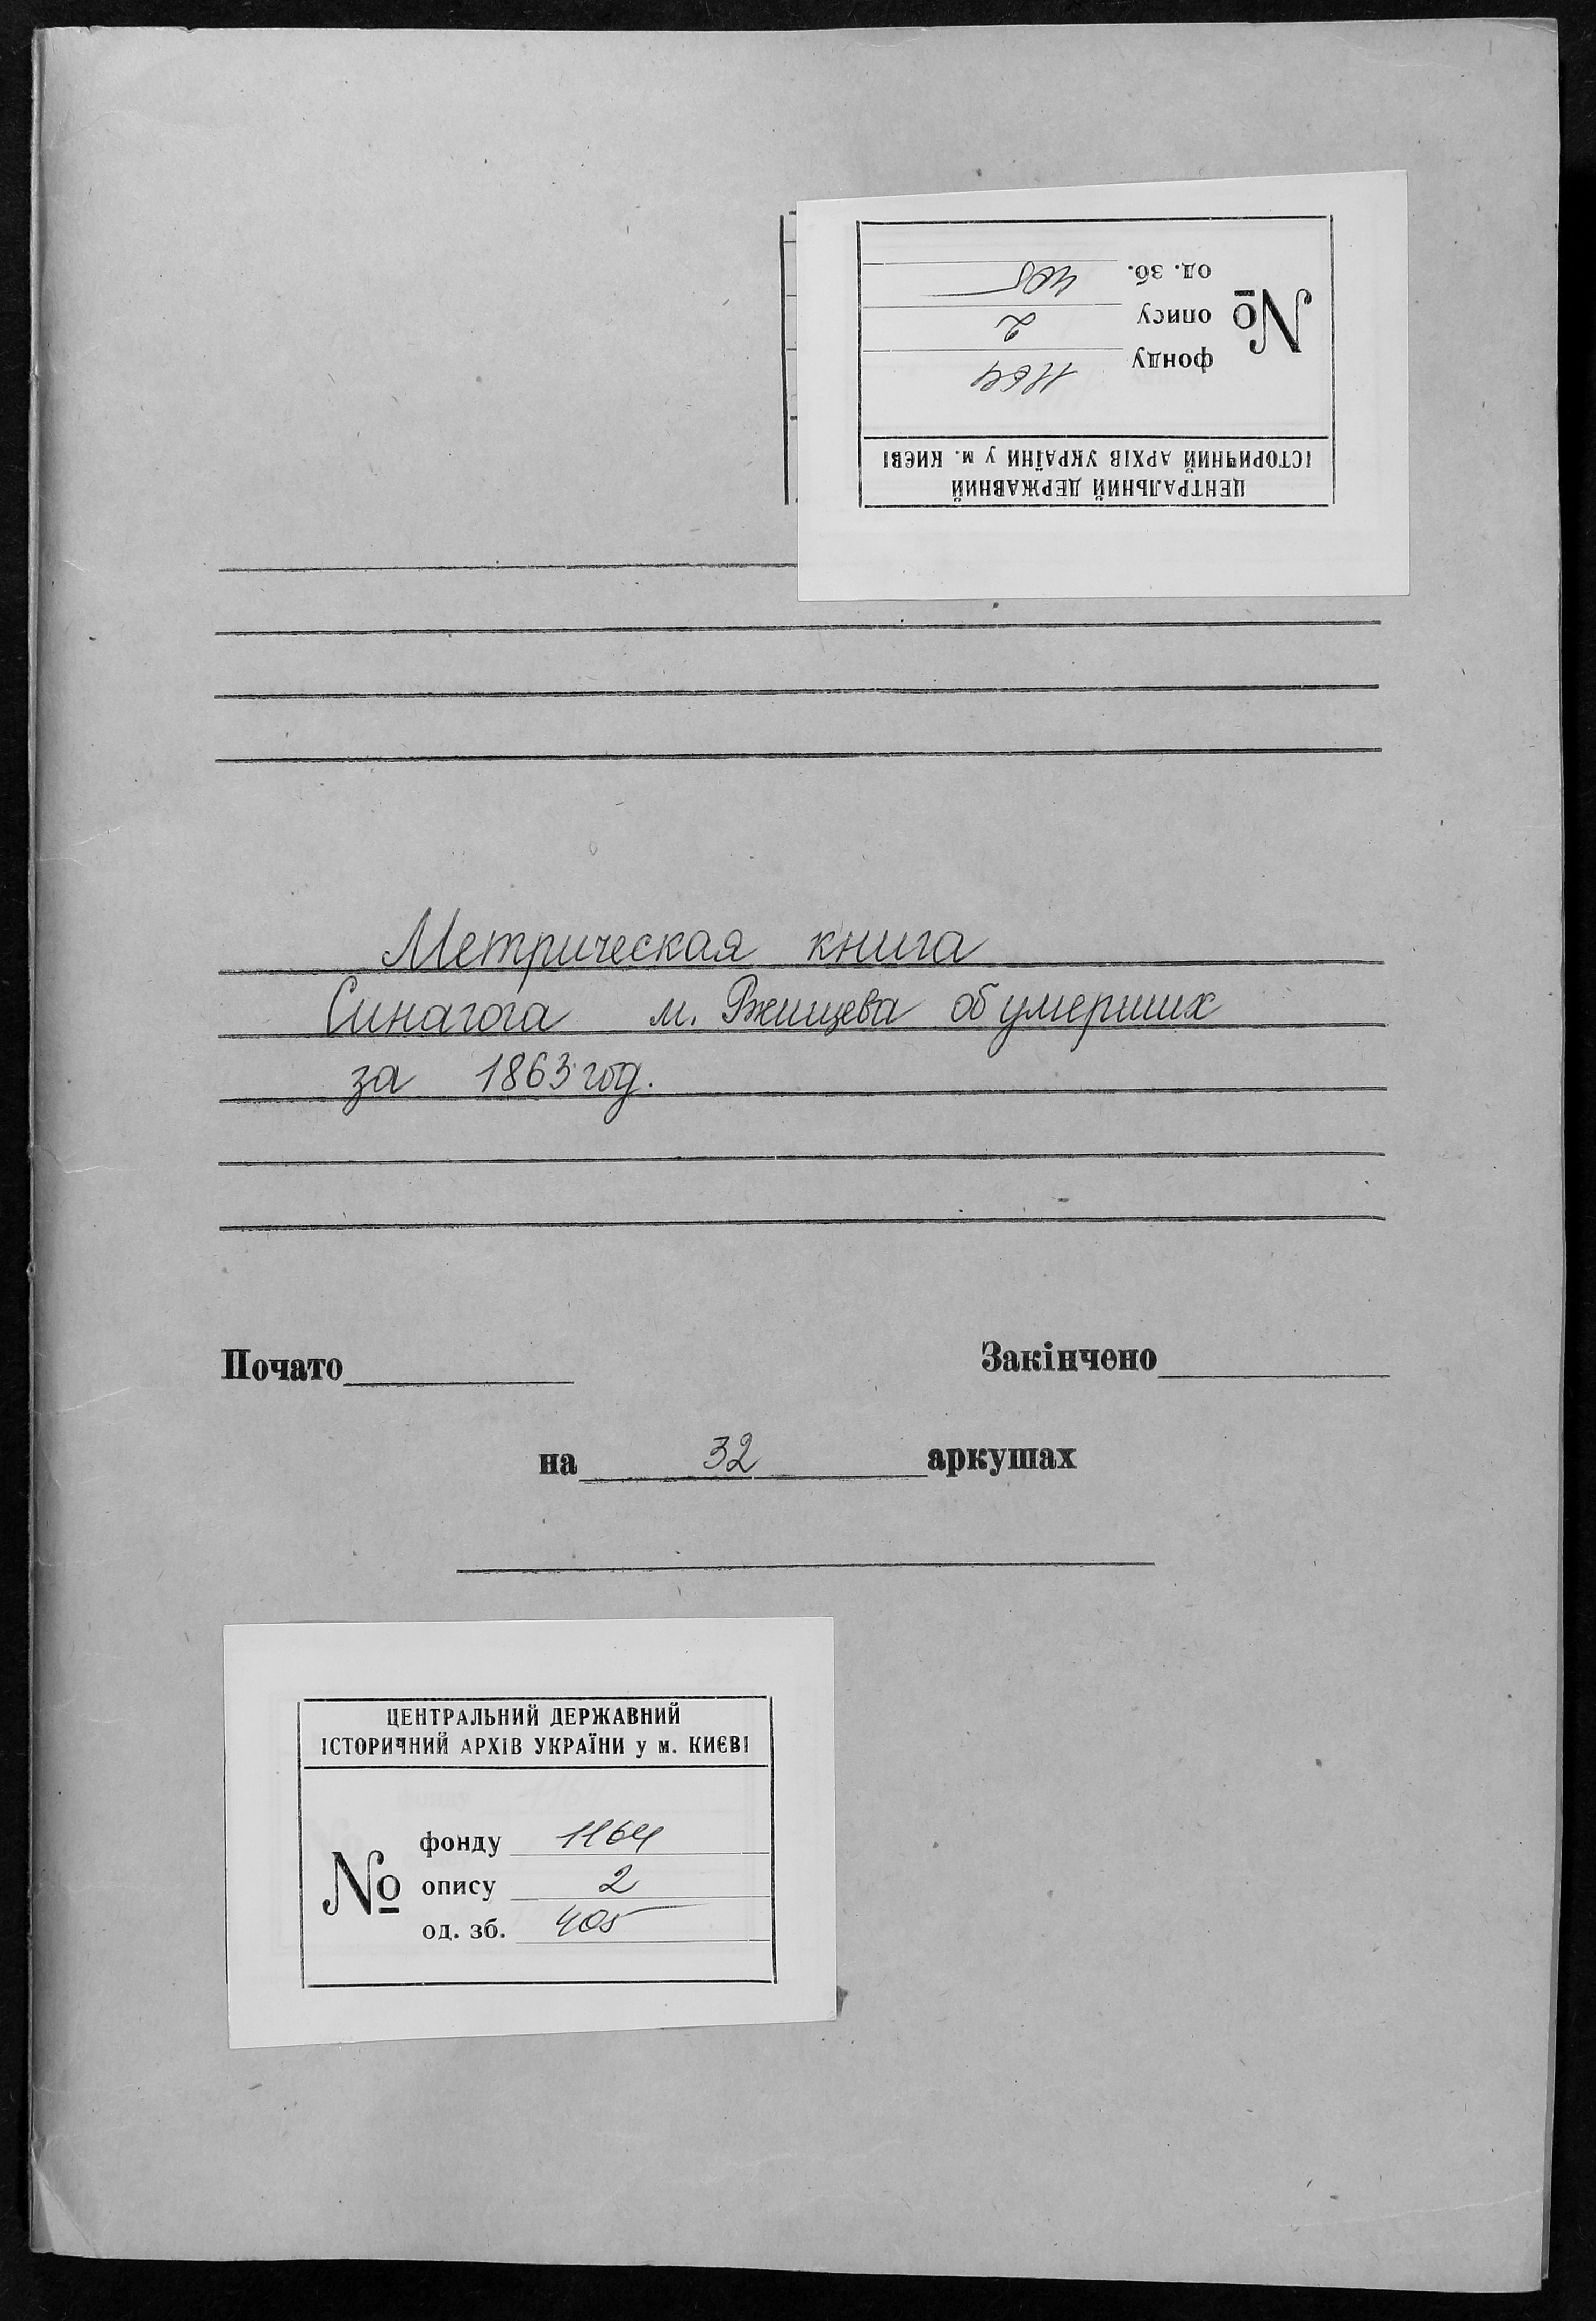 ЦЕНТРАЛЬНИЙ ДЕРЖАВНИЙ
ІСТОРИЧНИЙ АРХІВ УКРАЇНИ у м. КИЄВІ
№
фонду 1164
опису 2
од. зб. 405
Метрическая книга
Синагога м. Ржищева об умерших
за 1863 год.
Почато
Закінчено
на 32 аркушах
ЦЕНТРАЛЬНИЙ ДЕРЖАВНИЙ
ІСТОРИЧНИЙ АРХІВ УКРАЇНИ у м. КИЄВІ
№
фонду 1164
опису 2
од. зб. 405